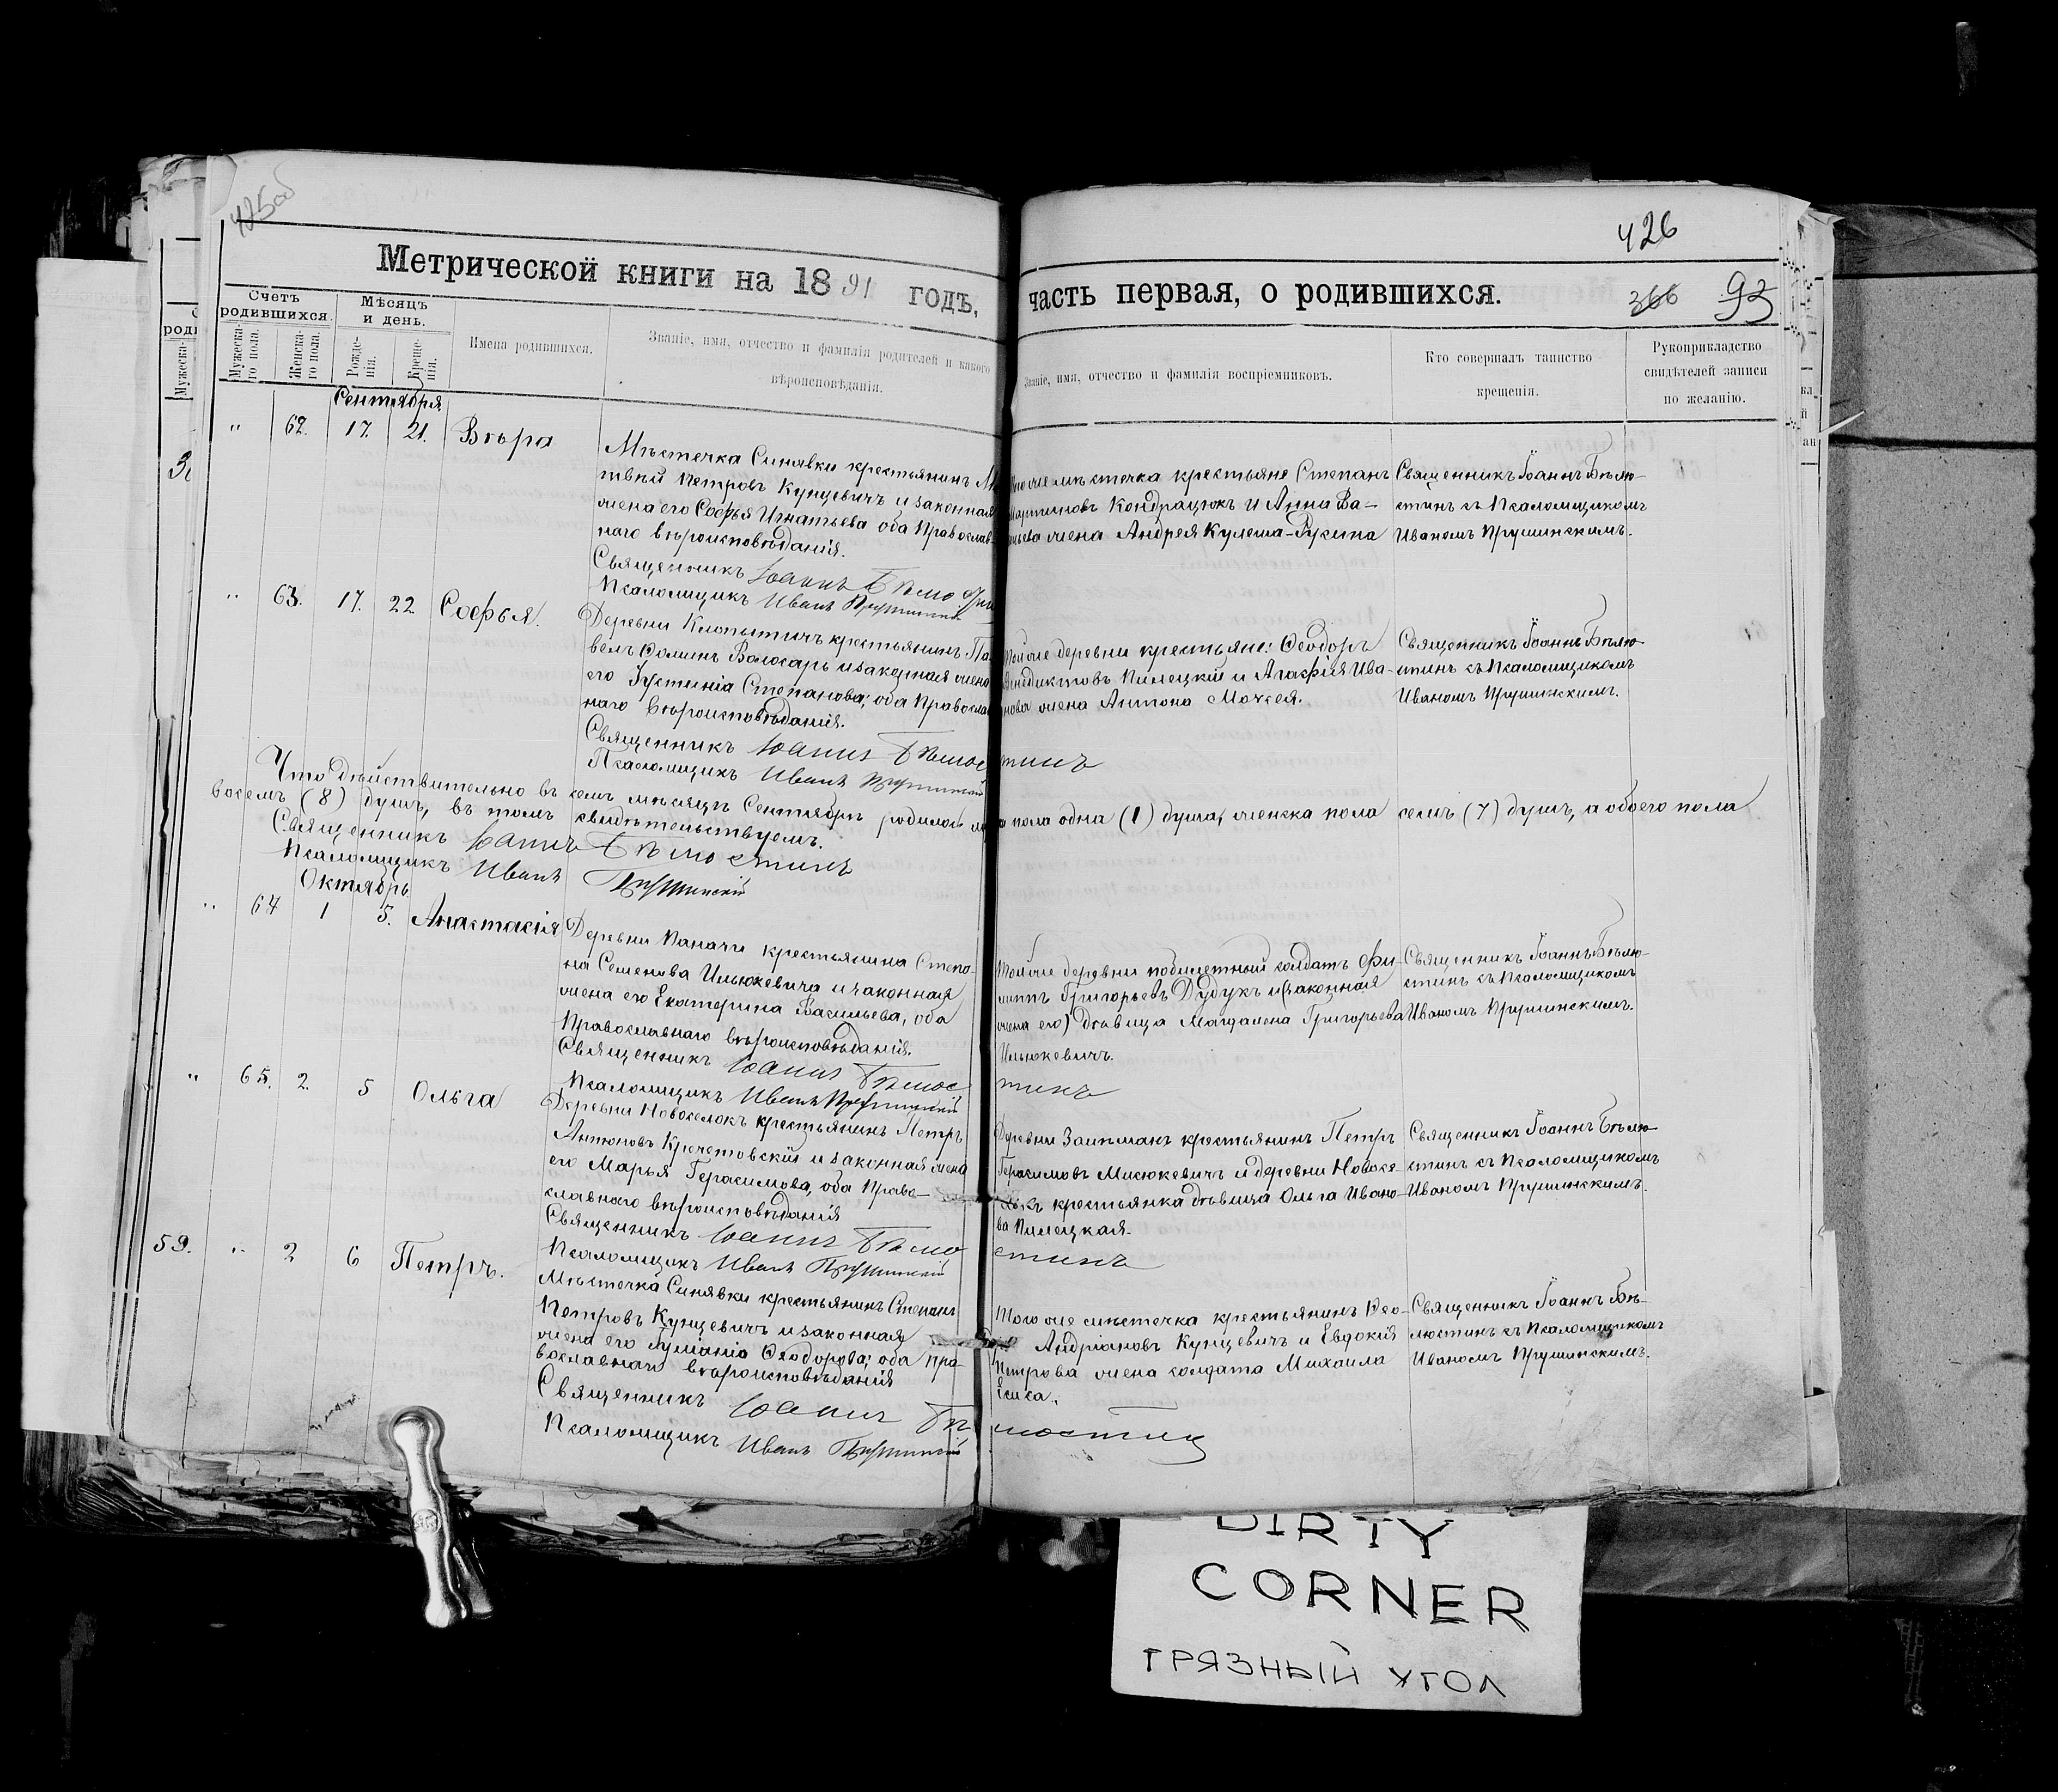 425об
426
Метрической книги на 1891 годъ,
часть первая, о родившихся.
366 93
Счетъ родившихся.
Мѣсяцъ и день.
Мужеска-го пола.
Женска-го пола.
Рожде-нія.
Креще-нія.
Имена родившихся.
Званіе, имя, отчество и фамилія родителей и какого
вѣроисповѣданія.
Званіе, имя, отчество и фамилія воспріемниковъ.
Кто совершалъ таинство
крещенія.
Рукоприкладство
свидѣтелей записи
по желанію.
Сентября
" 62. 17. 21. Вѣра
Мѣстечка Синявки крестьянинъ
твѣй Петровъ Кунцевичъ и законная
жена его Софья Игнатьева оба Православ-
наго вѣроисповѣданія.
Священникъ Іоаннъ
Псаломщикъ Иванъ Прушинскій
же мѣстечка крестьяне Степанъ
Мартиновъ Кондрацюкъ и Анна Ва-
жена Андрея Кулеша-Русина
Священникъ Іоаннъ Бѣлю-
стинъ съ Псаломщикомъ
Иваномъ Прушинскимъ.
" 63. 17. 22 Софья.
Деревни крестьянинъ Па
велъ Ѳоминъ и законная жена
его Іустинія Степанова, оба Православ
наго вѣроисповѣданія.
Священникъ Іоаннъ Бѣлюстинъ
Псаломщикъ Иванъ Прушинскій
Той же деревни крестьяне: Ѳеодоръ
Венедиктовъ Пилецкій и Агафія Ива-
нова жена Антона
Священникъ Іоаннъ Бѣлю-
стинъ съ Псаломщикомъ
Иваномъ Прушинскимъ.
Что дѣйствительно въ семъ мѣсяцѣ Сентябрѣ родилось пола одна (1) душа, женска пола семь (7) душъ, а обоего пола
восемь (8) душъ, въ томъ свидѣтельствуемъ.
Священникъ Іоаннъ Бѣлюстинъ
Псаломщикъ Иванъ Прушинскій
Октябрь
" 64 1 5. Анастасія
Деревни Паначи крестьянина Степа-
на Семенова Ильюкевича и законная
жена его Екатерина Васильева, оба
Православнаго вѣроисповѣданія.
Священникъ Іоаннъ Бѣлюстинъ
Псаломщикъ Иванъ Прушинскій
Той же деревни побилетный солдатъ Фи-
липпъ Григорьевъ Дудукъ и (законная
жена его) дѣвица Магдалена Григорьева
Ильюкевичъ.
Священникъ Іоаннъ Бѣлю-
стинъ съ Псаломщикомъ
Иваномъ Прушинскимъ.
" 65. 2. 5 Ольга
Деревни Новоселокъ крестьянинъ Петръ
Антоновъ Кречетовскій и законная жена
его Марья Герасимова, оба Право-
славнаго вѣроисповѣданія
Священникъ Іоаннъ Бѣлюстинъ
Псаломщикъ Иванъ Прушинскій
Деревни крестьянинъ Петръ
Герасимовъ Мисюкевичъ и деревни Новосе-
локъ крестьянка дѣвица Ольга Ивано-
ва Пилецкая.
Священникъ Іоаннъ Бѣлю-
стинъ съ Псаломщикомъ
Иваномъ Прушинскимъ.
59. " 2 6 Петръ.
Мѣстечка Синявки крестьянинъ Степанъ
Петровъ Кунцевичъ и законная
жена его Іуліанія Ѳеодорова, оба пра-
вославнаго вѣроисповѣданія
Священникъ Іоаннъ Бѣлюстинъ
Псаломщикъ Иванъ Прушинскій
Того же мѣстечка крестьянинъ Ѳео-
Андріановъ Кунцевичъ и Евдокія
Петрова жена солдата Михаила
Священникъ Іоаннъ Бѣ-
люстинъ съ Псаломщикомъ
Иваномъ Прушинскимъ.
DIRTY
CORNER
ГРЯЗНЫЙ УГОЛ